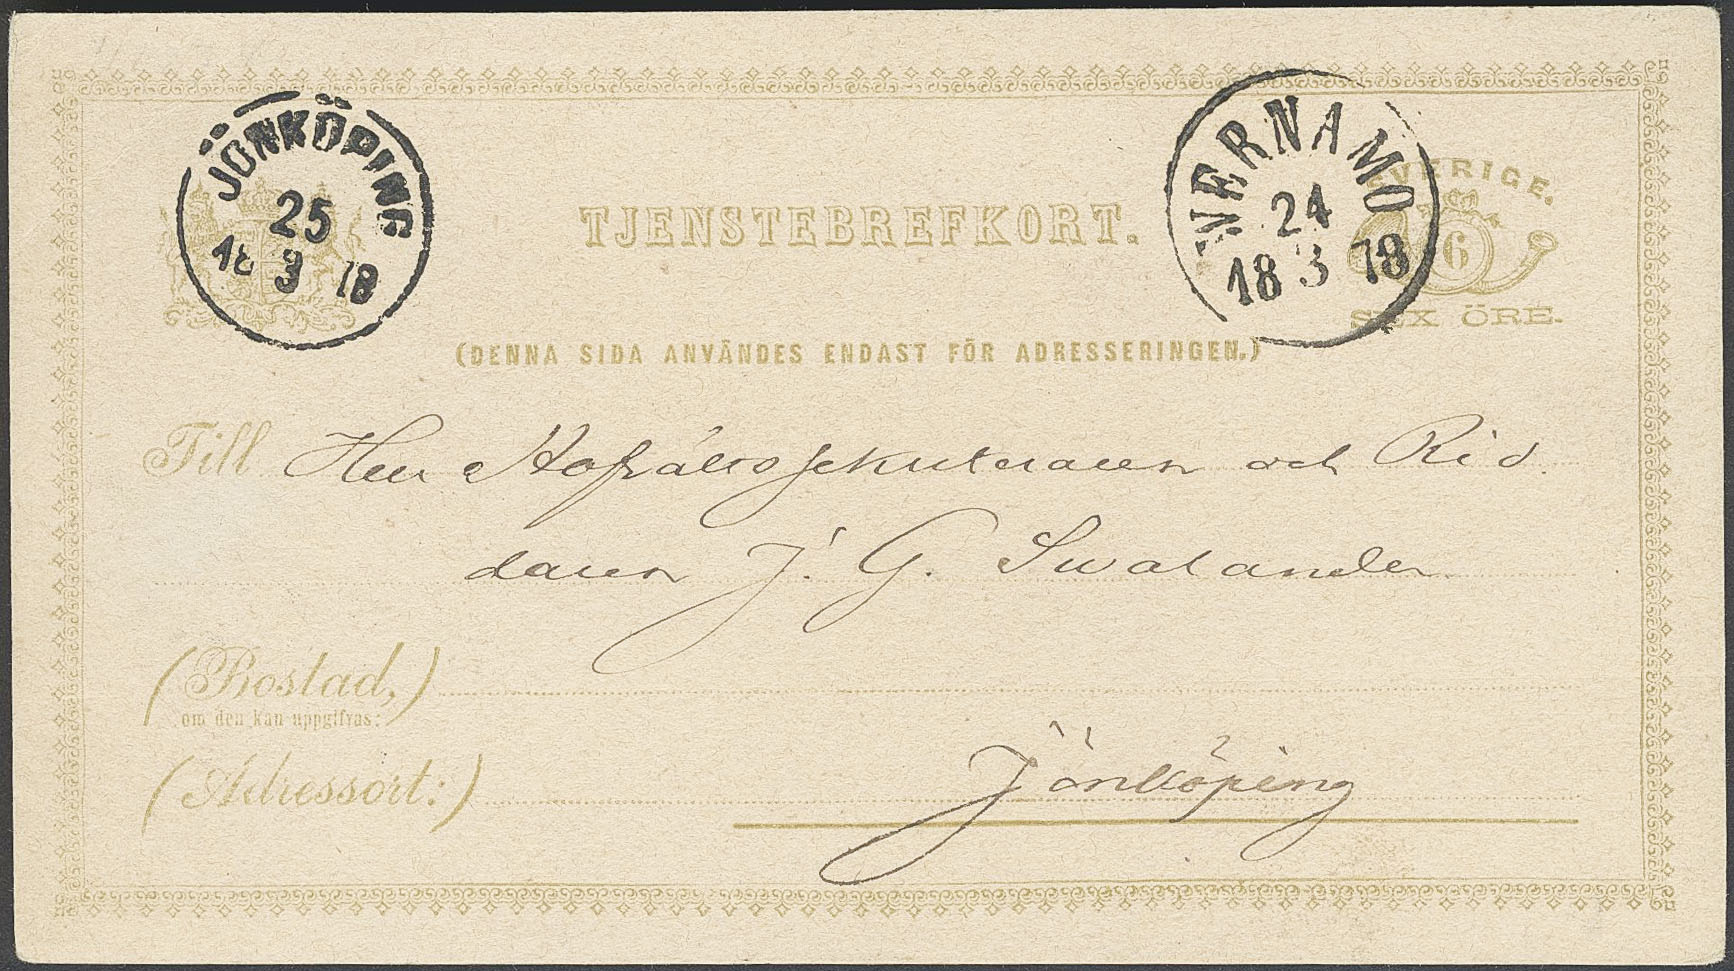 JÖNKÖPING
25
18 3 78
WERNAMO
24
18 3 78
TJENSTEBREFKORT.
SVERIGE.
6
SEX ÖRE.
(DENNA SIDA ANVÄNDES ENDAST FÖR ADRESSERINGEN.)
Till Herr och Rid
daren J. G. Swalander
(Bostad,)
om den kan uppgifvas:
(Adressort:) Jönköping